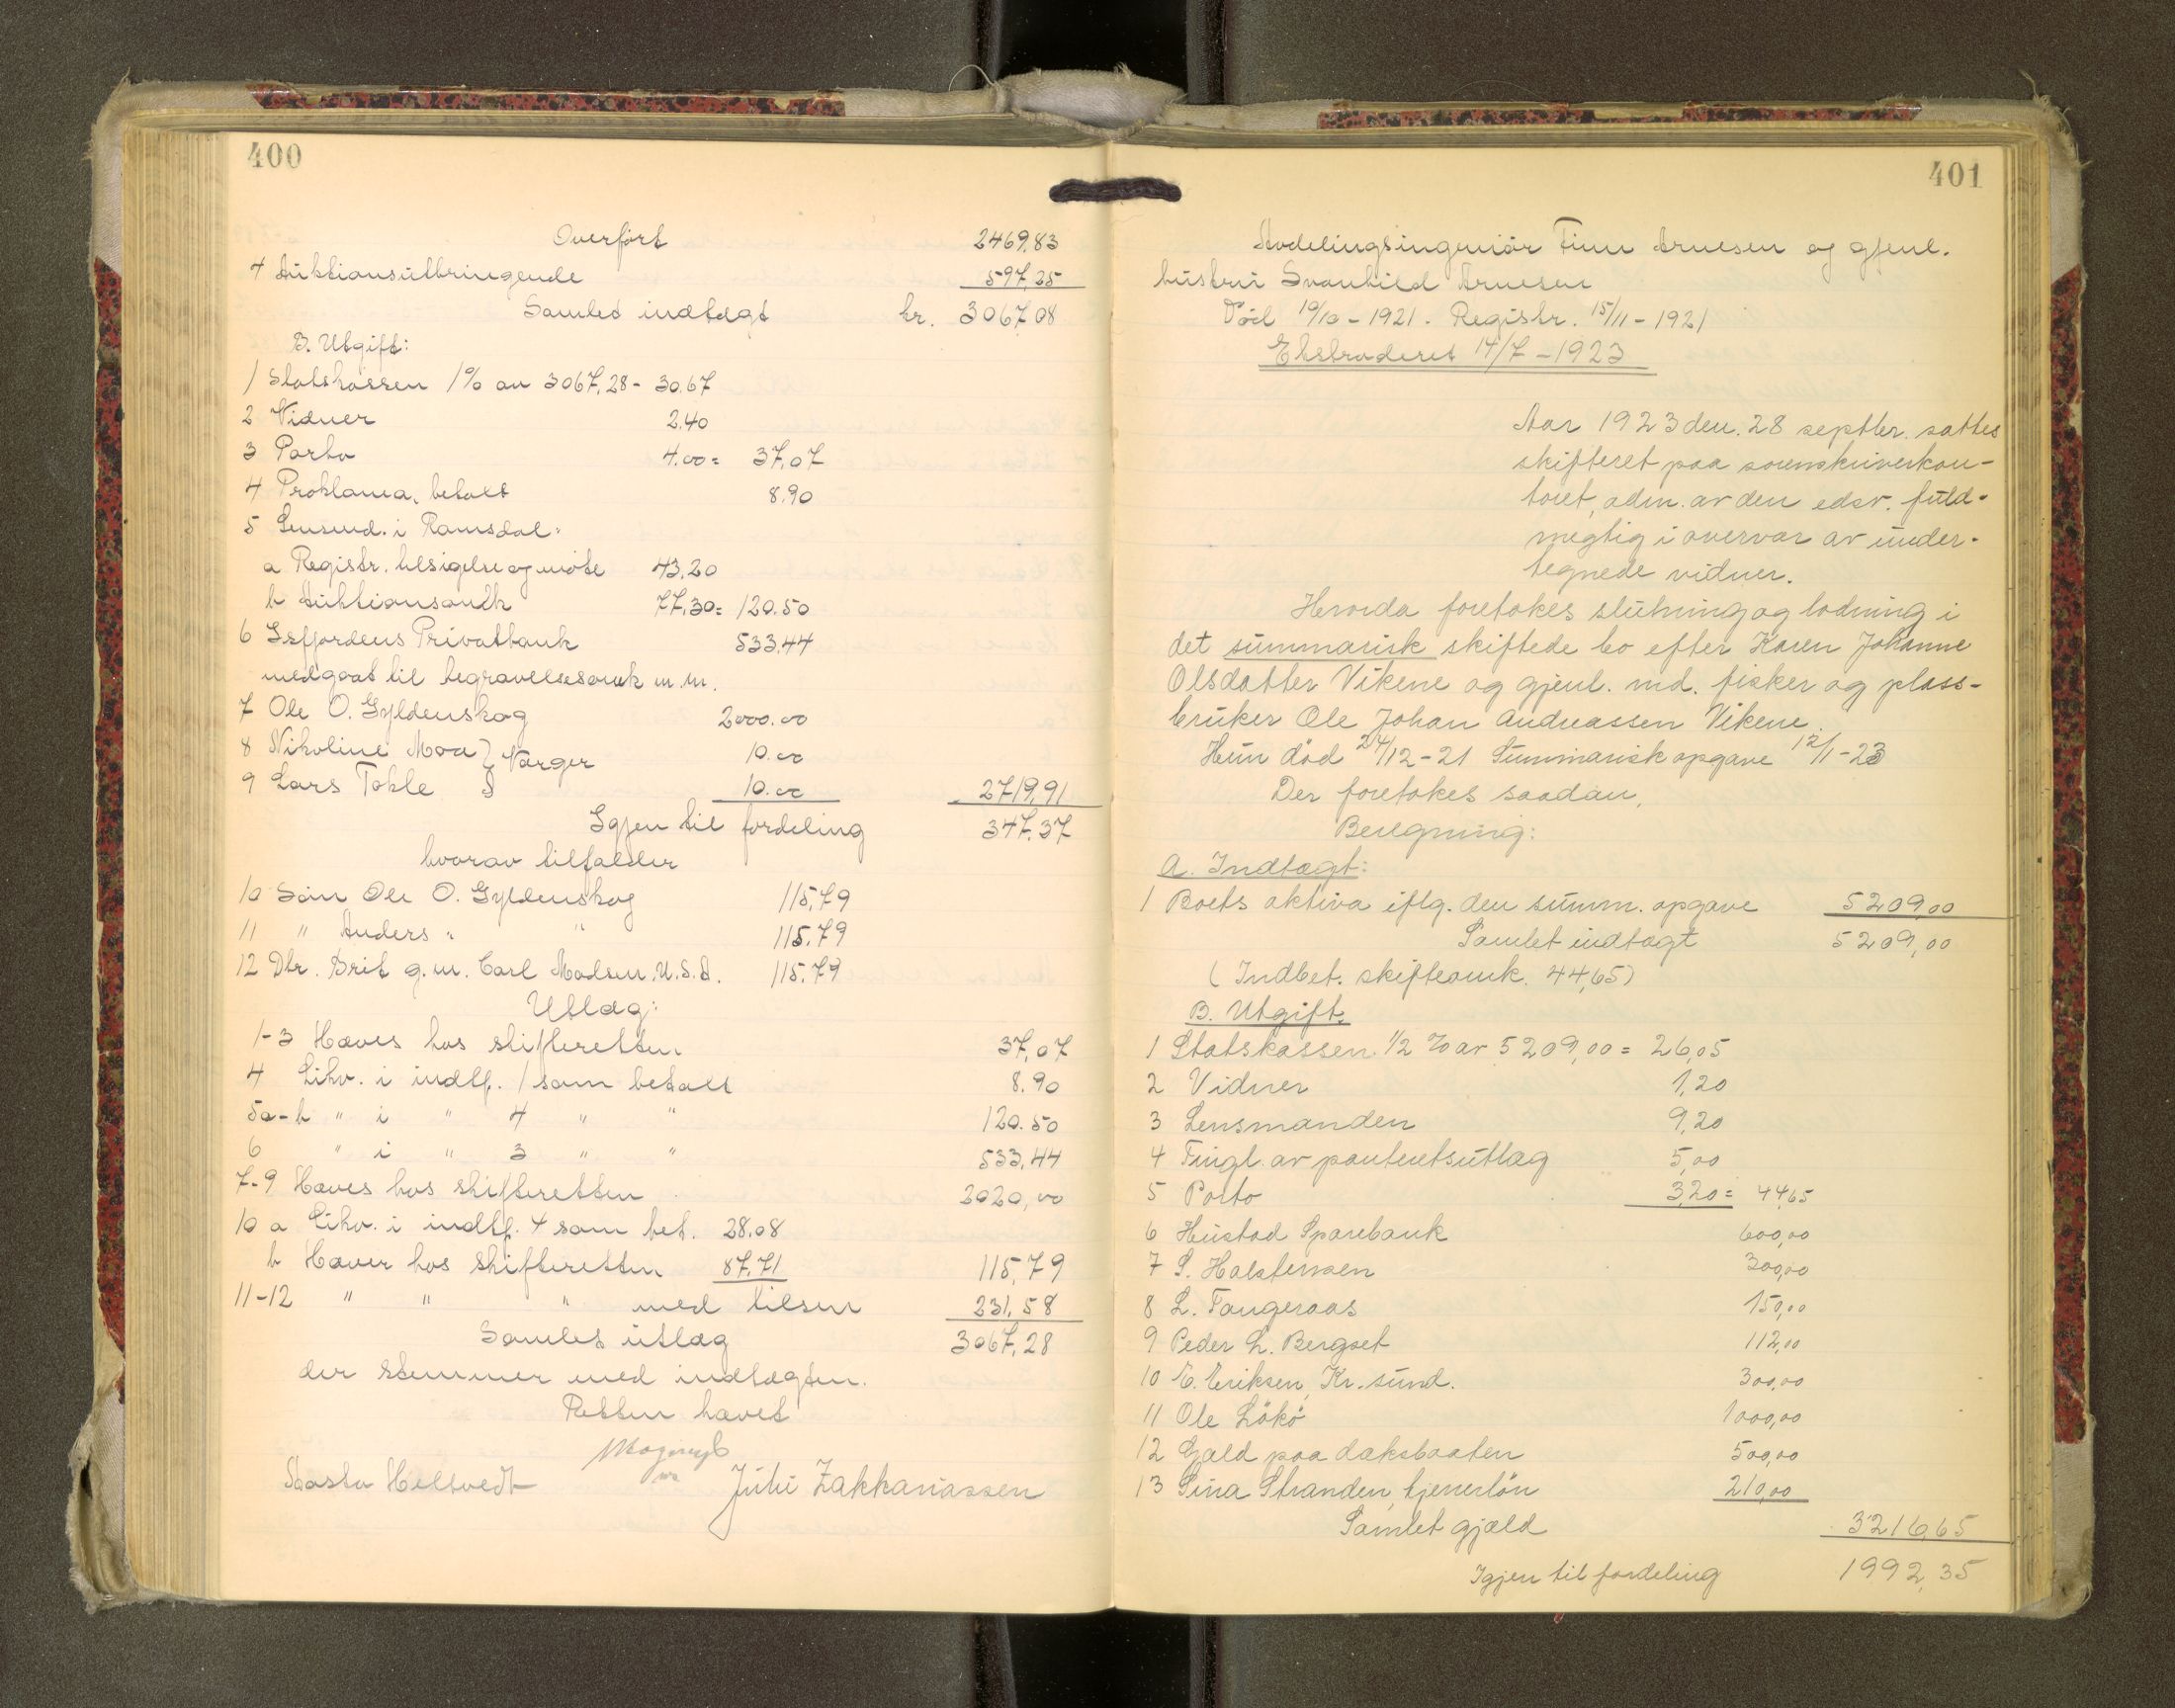 400
Overført 2469,83
4 Auktionsutbringende 597,25
Samlet indtægt kr. 3067,08
B. Utgift:
1 Statskassen 1% av 3067,28 - 30.67
2 Vidner 2.40
3 Porto 4.00 = 37,07
4 Proklama, betalt 8.90
5 Lensmd. i Romsdal:
a Registr. tilsigelse og møte 43,20
b Auktionsomk 77,30 = 120.50
6 Isfjordens Privatbank 533,44
medgaat til begravelsesomk m.m.
7 Ole O. Gyldenskog 2000.00
8 Nikoline Moa } Værger 10.00
9 Lars Tokle } 10.00 2719,91
Igjen til fordeling 347,37
hvorav tilfalder
10 Søn Ole O. Gyldenskog 115,79
11 " Anders " " 115,79
12 Dtr. Brit g.m. Carl Madsen U.S.A. 115,79
Utlæg:
1-3 Hæves hos skifteretten 37,07
4 Likv. i indtf. 1 som betalt 8.90
5a-b " i " 4 " " 120.50
6 " i " 3 " " 533,44
7-9 Hæves hos skifteretten 2020,00
10 a Likv. i indtf. 4 som bet. 28.08
b Hæver hos skifteretten 87.71 115,79
11-12 " " " med tilsm 231,58
Samlet utlæg 3067,28
der stemmer med indtægten.
Retten hævet
Aasta Heltvedt Juli Zakkariassen
401
Avdelingsingeniør Finn Arnesen og gjenl.
hustru Svanhild Arnesen
Död 19/10 - 1921. Registr. 15/11 - 1921
Ekstraderet 14/7 - 1923
Aar 1923 den 28 septber. sattes
skifteret paa sorenskriverkon-
toret, adm. av den edsv. fuld-
megtig i overvær av under-
tegnede vidner.
Hvorda foretokes slutning og lodning i
det summarisk skiftede bo efter Karen Johanne
Olsdatter Vikene og gjenl. md. fisker og plass-
bruker Ole Johan Andreassen Vikene.
Hun död 24/12-21 Summarisk opgave 12/1-23
Der foretokes saadan,
Beregning:
A. Indtægt:
1 Boets aktiva iflg. den summ. opgave 5209,00
Samlet indtægt 5209,00
(Indbet. skifteomk. 44,65)
B. Utgift.
1 Statskassen 1/2 % av 5209,00 = 26,05
2 Vidner 1,20
3 Lensmanden 9,20
4 Tingl. av panteretsutlæg 5,00
5 Porto 3,20 = 44,65
6 Hustad Sparebank 600,00
7 S. Halstensen 300,00
8 L. Tangeraas 150,00
9 Peder L. Bergset 112,00
10 E. Eriksen, Kr.sund. 300,00
11 Ole Lökö 1000,00
12 Gjæld paa dæksbaaten 500,00
13 Sina Stranden, tjenerlön 210,00
Samlet gjæld 3216,65
Igjen til fordeling 1992,35